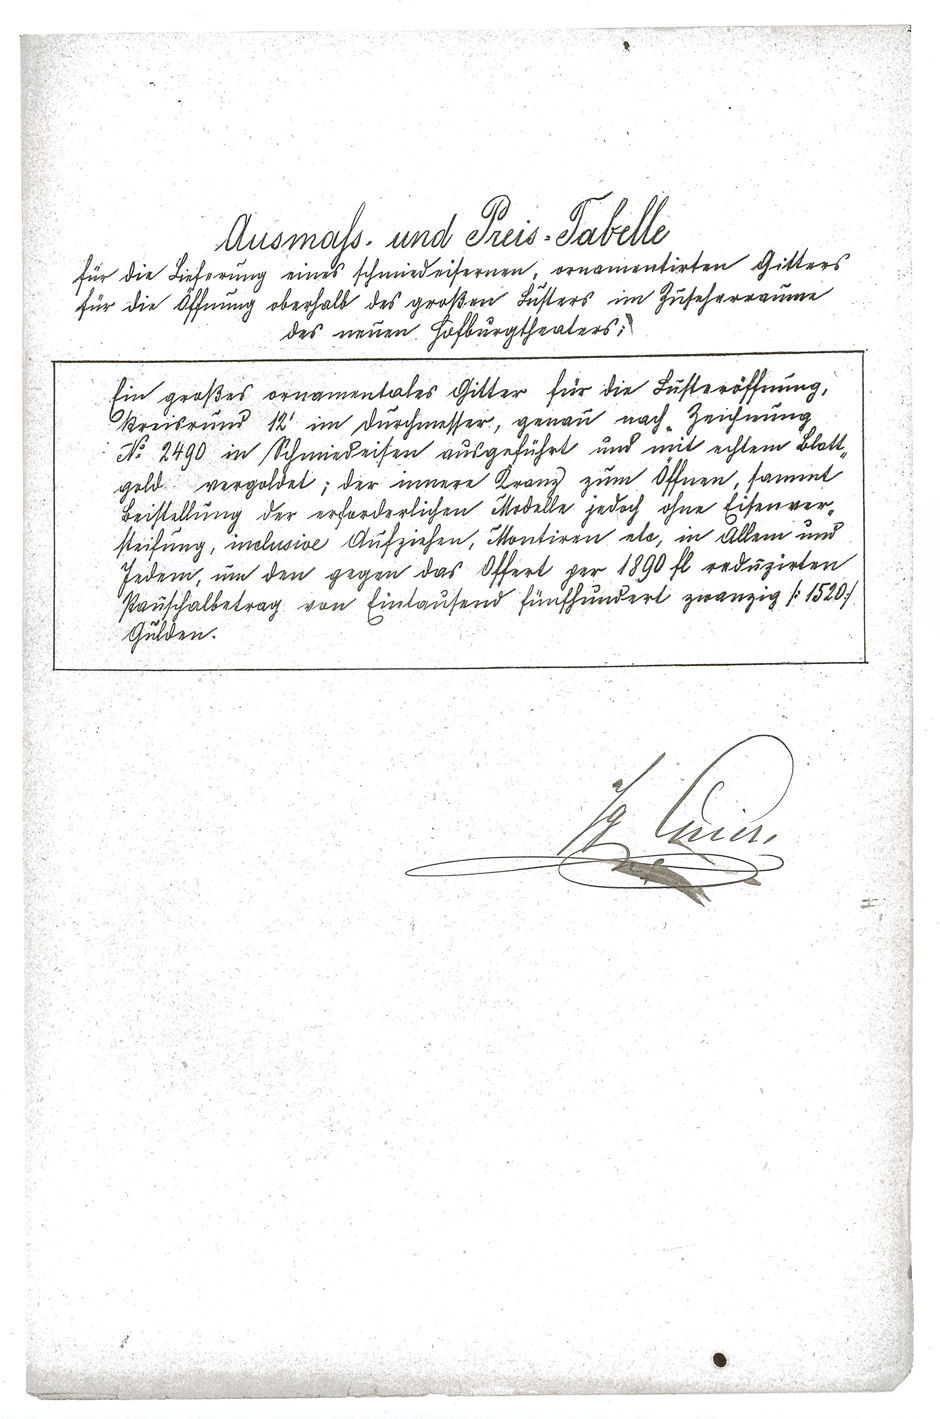 Ausmass- und Preis-Tabelle
für die Lieferung eines schmiedeisernen, ornamentirten Gitters
für die Öffnung oberhalb des großen Lusters im Zuseherraume
des neuen Hofburgtheaters:
Ein großes ornamentales Gitter für die Lusteröffnung,
kreisrund 12' im Durchmesser, genau nach Zeichnung
No 2490 in Schmiedeisen ausgeführt und mit echtem Blatt-
gold vergoldet; der innere Kranz zum Öffnen, sammt
Beistellung der erforderlichen Modelle jedoch ohne Eisenver-
steifung, inclusive Aufziehen, Montiren etc, in Allem und
Jedem, um den gegen das Offert per 1890 fl reduzirten
Pauschalbetrag von Eintausend fünfhundert zwanzig /: 1520 :/
Gulden.
Ig